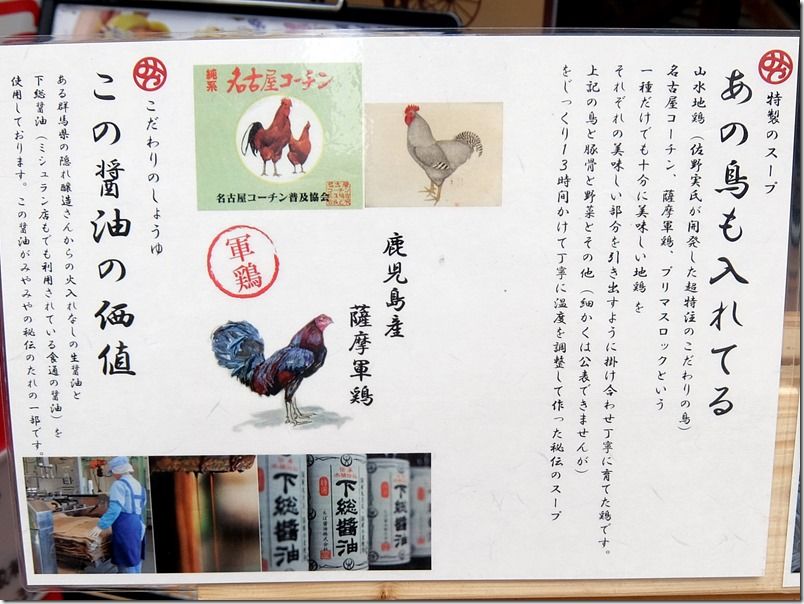 特製のスープ
あの鳥も入れてる
山水地鶏（佐野実氏が開発した超特注のこだわりの鳥）
名古屋コーチン、薩摩軍鶏、プリマスロックという
一種だけでも十分に美味しい地鶏を
それぞれの美味しい部分を引き出すように掛け合わせ丁寧に育てた鶏です。
上記の鳥と豚骨と野菜とその他（細かくは公表できませんが）
をじっくり13時間かけて丁寧に温度を調整して作った秘伝のスープ
純系
名古屋コーチン
名古屋コーチン普及協会
鹿児島産
薩摩軍鶏
軍鶏
こだわりのしょうゆ
この醤油の価値
ある群馬県の隠れ醸造さんからの火入れなしの生醤油と
下総醤油（ミシュラン店もでも利用されている食通の醤油）を
使用しております。この醤油がみやみやの秘伝のたれの一部です。
下総醤油
下総醤油